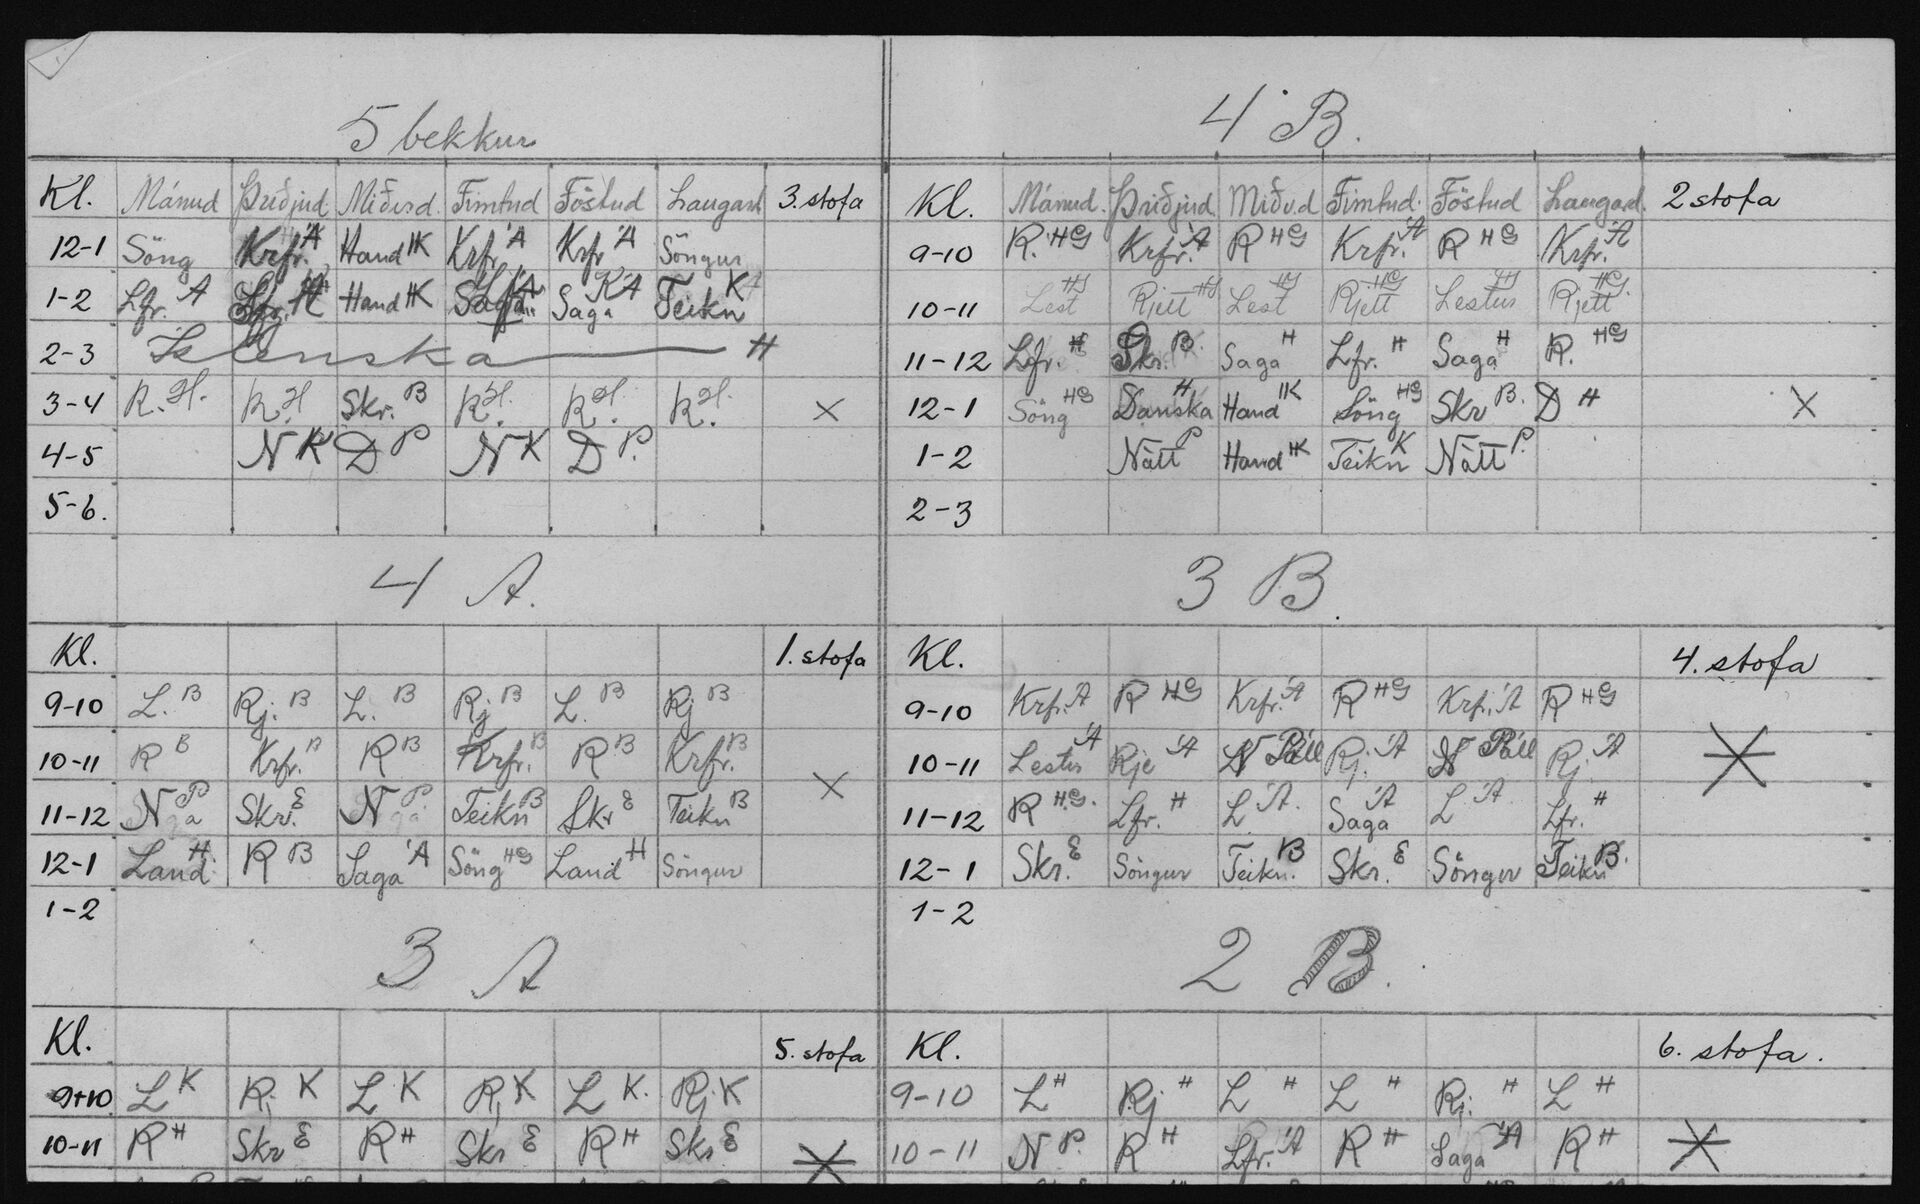 5 bekkur
Kl. Mánud Þriðjud Miðvd. Fimtud Föstud Laugard 3. stofa
12-1 Söng Krfr. Á Hand HK Krfr. Á Krfr Á Söngur
1-2 Lfr. Á Hand HK Saga KÁ Teikn K
2-3 Íslenska H
3-4 R. H. R. H Skr. B R. H. R. H. R. H. X
4-5 N K D P N K D P.
5-6.
4 B.
Kl. Mánud. Þriðjud. Miðvd Fimtud. Föstud Laugard. 2 stofa
9-10 R. HG Krfr. Á R HG Krfr. Á R HG Krfr. Á
10-11 Lest HG Rjett HG Lest HG Rjett HG Lestur HG Rjett HG.
11-12 Lfr. H Skr. B. Saga H Lfr. H Saga H R. HG
12-1 Söng HG Danska H Hand HK Söng HG Skr B. D H X
1-2 Nátt P Hand HK Teikn K Nátt P.
2-3
4 A.
Kl. 1. stofa
9-10 L. B Rj. B L. B Rj B L. B Rj B
10-11 R B Krfr. B R B Krfr. B R B Krfr. B
11-12 N P Skr. E N P. Teikn B Skr E Teikn B X
12-1 Land H. R B Saga Á Söng HG Land H Söngur
1-2
3 B.
Kl. 4. stofa
9-10 Krfr. Á R HG Krfr. Á R HG Krfr. Á R HG
10-11 Lestur Á Rje Á N Páll Rj. Á N Páll Rj. Á
11-12 R H.G. Lfr. H L Á. Saga Á L Á. Lfr. H
12-1 Skr. E Söngur Teikn. B Skr. E Söngur Teikn B.
1-2
3 A
Kl. 5. stofa
9-10 L K Rj K L K Rj K L K. Rj K
10-11 R H Skr E R H Skr E R H Skr E
2 B.
Kl. 6. stofa.
9-10 L H Rj H L H L H Rj. H L H
10-11 N P. R H Lfr. Á R H Saga Á R H